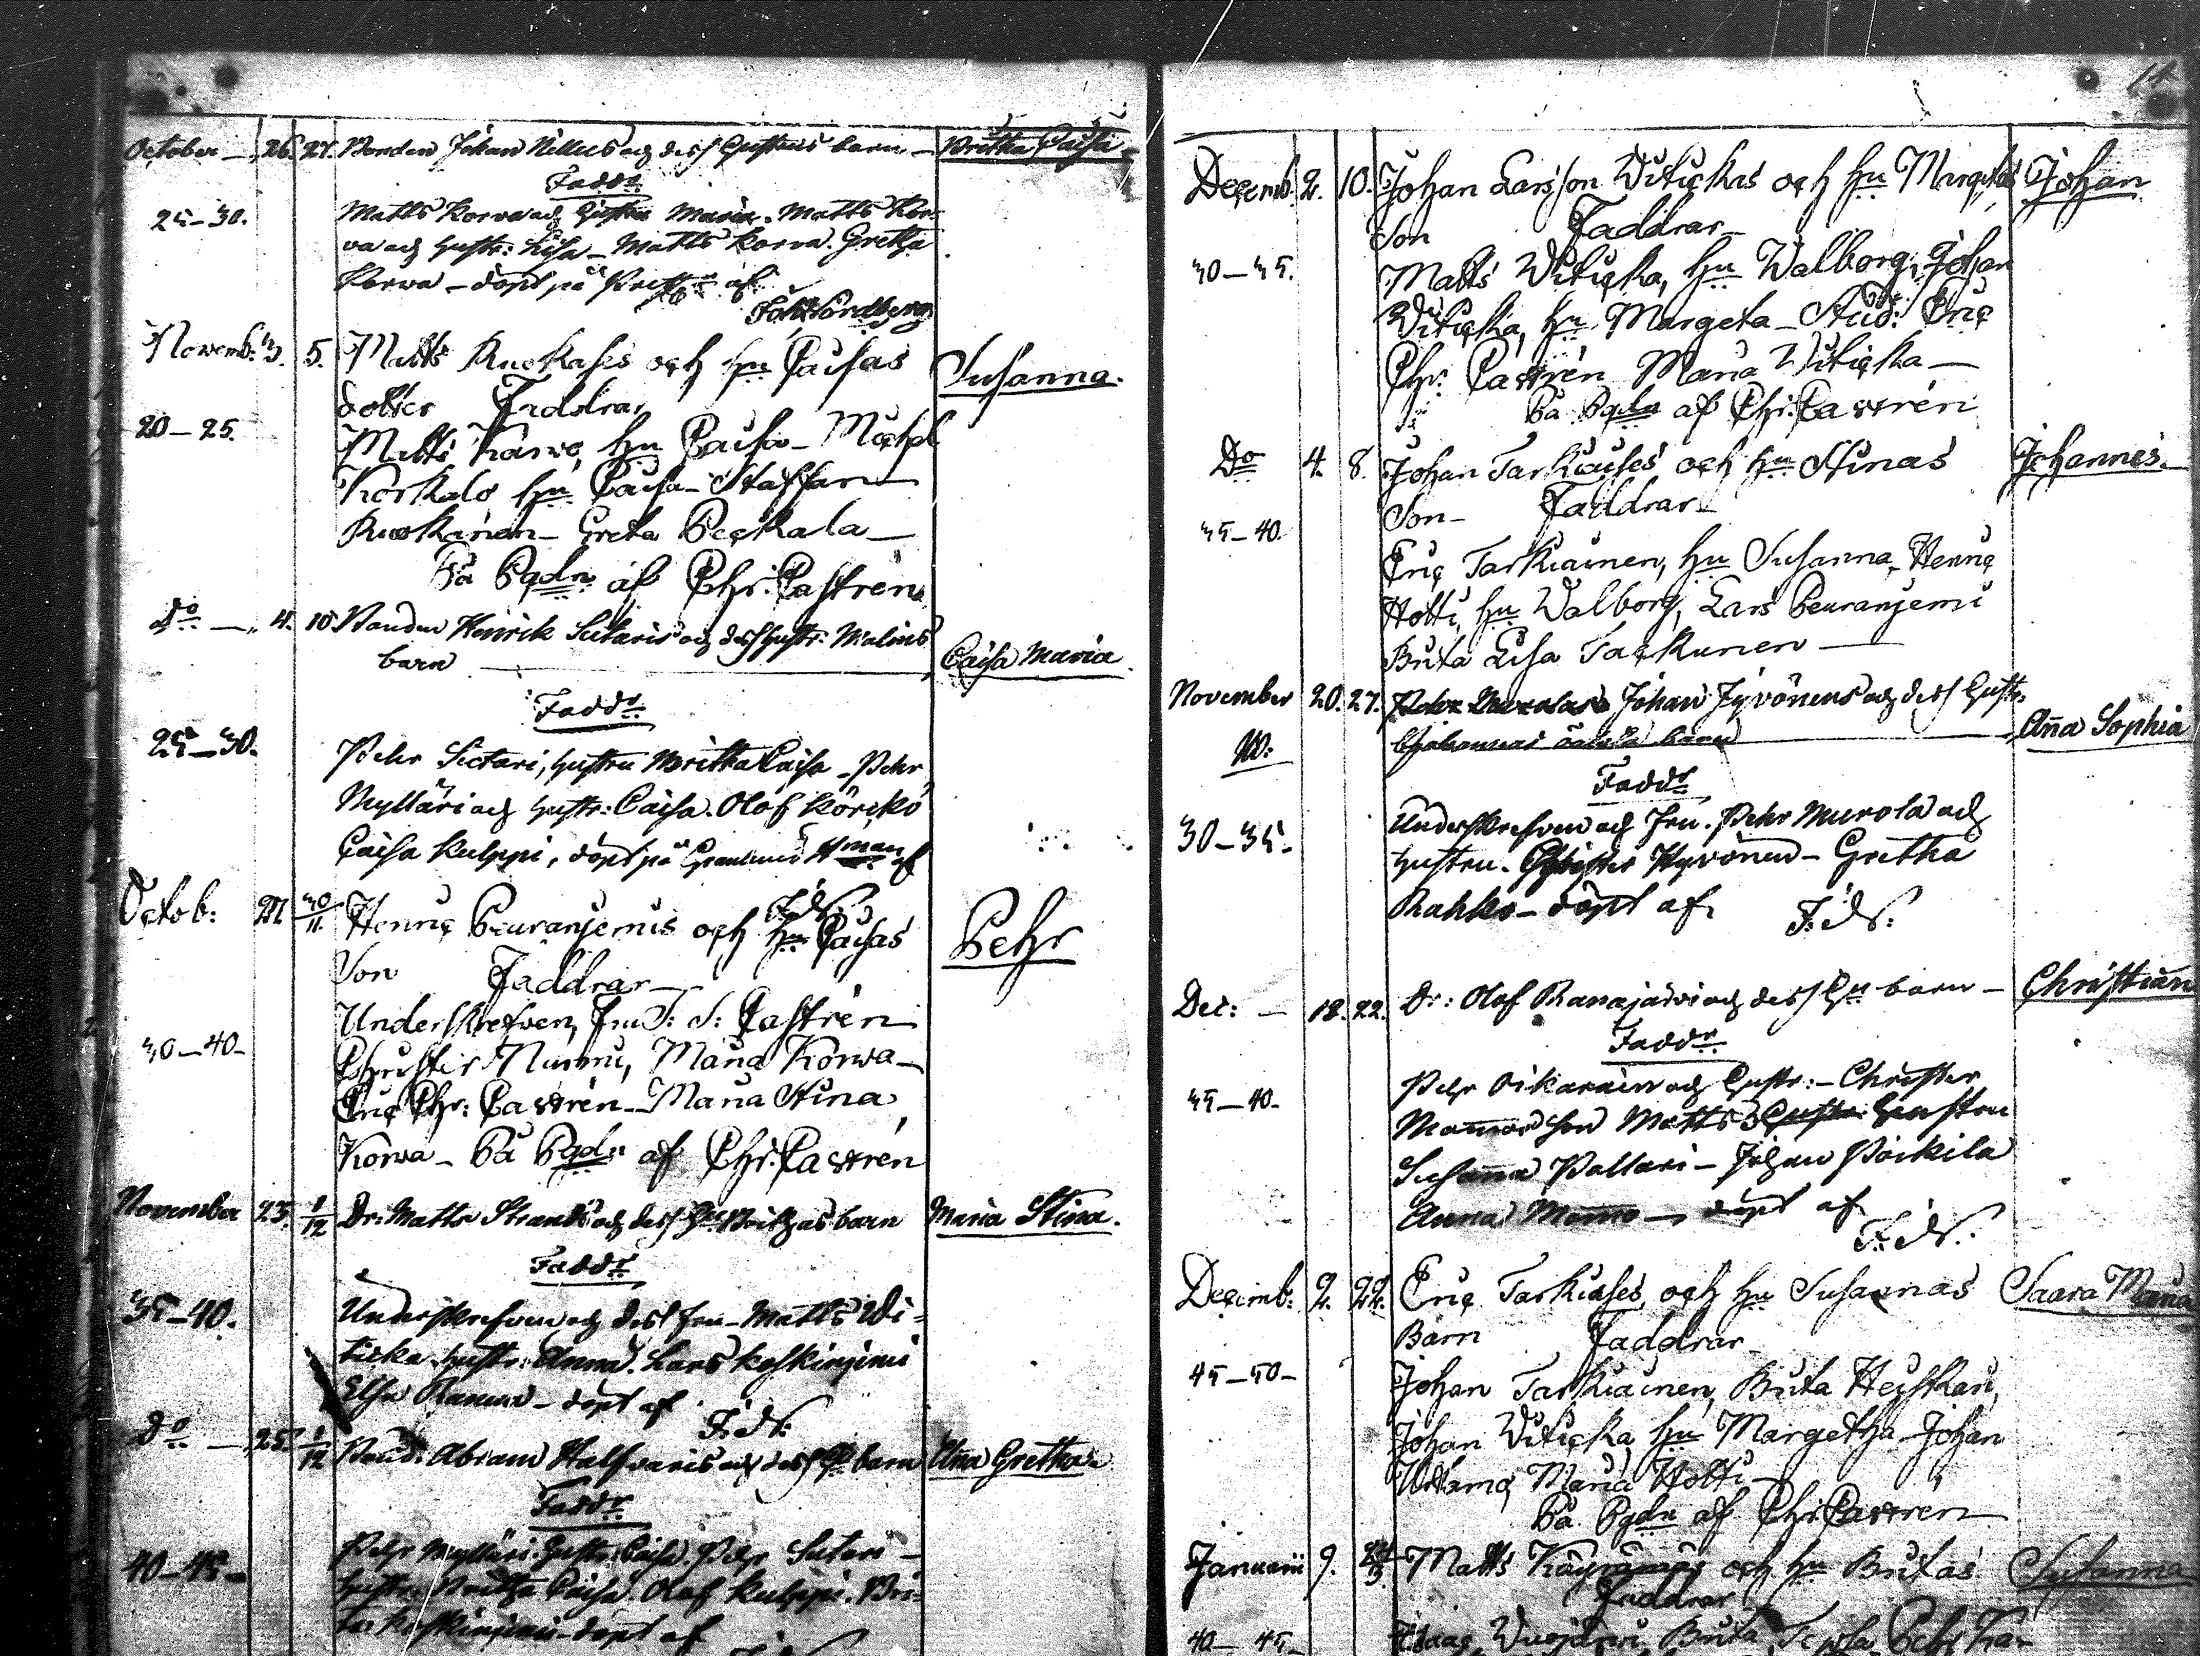 14
October — 26. 27. Bonden Johan Nilkus och dess Hustrus barn — Britha Caisa
Faddr.
25–30. Matts Korva och Hustru Maria. Matts Kor-
va och Hustr: Lisa – Matts Korva. Gretha
Korva – döpt på af
Joh Nordberg
Novemb: 3. 5. Matts Ruokases och hu Caisas Susanna.
dotter Faddrar
20–25. Matts Karvo, hu Caisa – Michel
Korkalo hu Caisa – Staffan
Ruokanen – Greta Peckala —
På Pgdn af Chr: Castrén
Do — 4. 10. Bonden Henrik Sutaris och dess Hustr: Malins
barn — Caisa Maria
Faddr
25–30. Pehr Sutari, Hustru Britha Caisa – Pehr
Mylläri och Hustr: Caisa. Olof Körckö
Caisa Kulppi, döpt på af
F. d. N.
Octob: 27. 30/11. Henric Peuranjemis och hu Caisas Pehr
Son Faddrar —
Underskrefven, Fru F: S: Castrén
30–40– Christer Nurmi, Maria Korwa –
Eric Chr: Castrén – Maria Stina
Korwa – På Pgdn af Chr: Castrén
November 23. 1/12 Dr: Matts Strands och dess Hu Brithas barn Maria Stina.
Faddr
35–40. Underskrefven och dess fru – Matts Wi-
ticka Hustr: Anna. Lars Koskinjemi
Elsa – döpt af
F: d N:
Do — 25. 1/12 Bond. Abram Halfvaris och dess Hu barn Anna Gretha.
Faddr
40–45– Pehr Mylläri. Hustr: Caisa. Pehr Sutari –
Hustr: Britha Caisa. Olof Kulppi. Bri-
ta Koskinjemi – döpt af
Decemb. 2. 10. Johan Larsson Witickas och hu Margetas Johan
Son Faddrar –
40–45. Matts Witicka, hu Walborg, Johan
Witicka, hu Margeta – Stud: Eric
Chr: Castrén Maria Witicka —
På Pgdn af Chr: Castrén
Do 4. 8. Johan Tarkiaises och hu Stinas Johannes.
Son – Faddrar –
35–40. Eric Tarkiainen, hu Susanna, Henric
Hotti, hu Walborg, Lars Peuranjemi
Brita Lisa Tarkiainen —
November 20. 27. Johan Jyvönens och dess Hustr.
barn Anna Sophia
Faddr
30–35. Underskrefven och Fru. Pehr Murola och
Hustru. Hyvönen – Gretha
Rahko – döpt af F: d N:
Dec: — 18. 22. Dr: Olof Ranajärvi och dess Hu barn – Christian
Faddr
35–40– Pehr Oikarainen och Hustr: – Christer
son Matts Hustru
Susanna Pallari – Johan Poikila
Anna Mommo – döpt af
F: d N:
Decemb: 2. 22. Eric Tarkiases och hu Susannas Saara Maria
Barn Faddrar
45–50– Johan Tarkiainen, Brita Heiskari,
Johan Witicka hu Margetha Johan
Maria Hotti –
På Pgdn af Chr: Castrén
Januarii 9. Matts och hu Britas Susanna
Faddrar
40–45– Brita Pehr Kar-